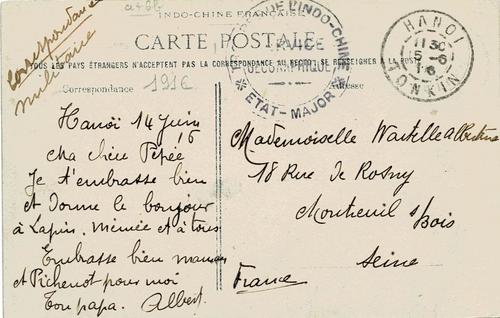 a+66
INDO-CHINE FRANÇAISE
CARTE POSTALE
TOUS LES PAYS ÉTRANGERS N'ACCEPTENT PAS LA CORRESPONDANCE AU RECTO, SE RENSEIGNER A LA POSTE
Correspondance
militaire
Correspondance
1916
Adresse
DE L'INDO-CHINE
SERVICE
GÉOGRAPHIQUE
* ETAT-MAJOR *
HANOI
TONKIN
Hanoï 14 Juin
16
Ma chère Pépée
Je t'embrasse bien
et donne le bonjour
à Lapin. Mémée et à tous
Embrasse bien maman
et Pichenot pour moi
Ton papa. Albert.
Mademoiselle Wattelle Albertine
18 Rue de Rosny
Montreuil s/Bois
Seine
France